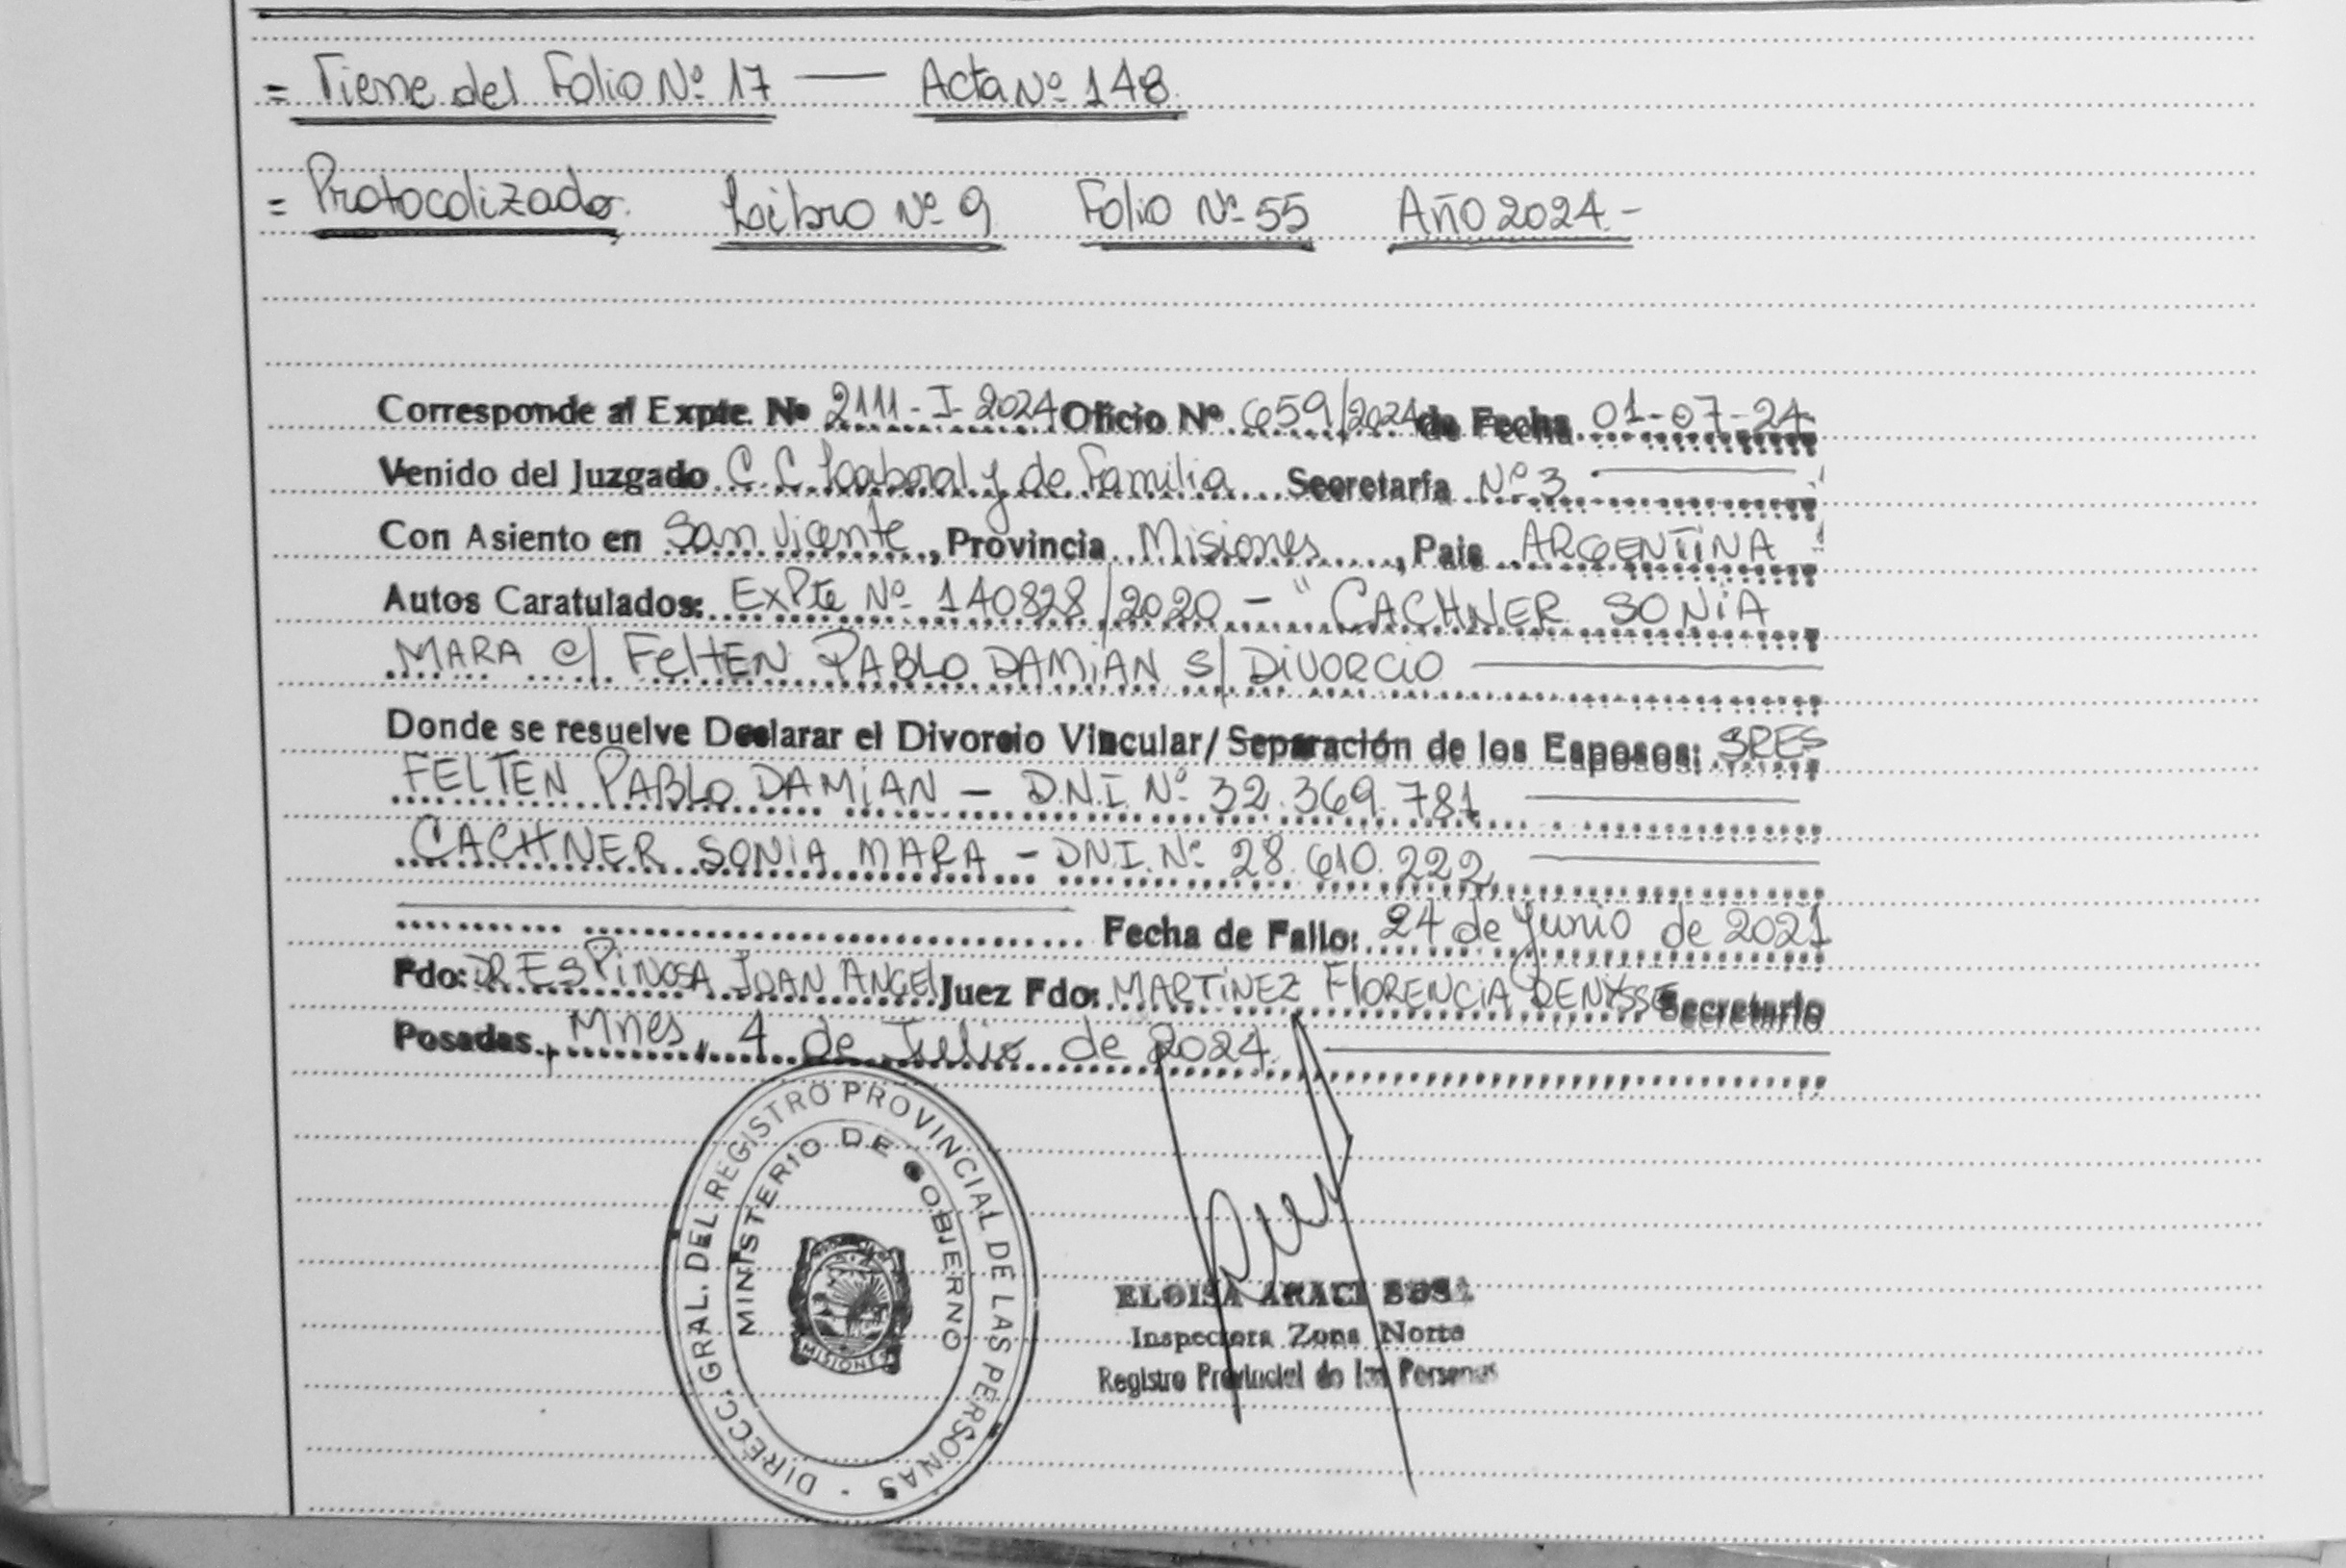 = Viene del Folio Nº 17 — Acta Nº 148.
= Protocolizado. Libro Nº 9 Folio Nº 55 Año 2024.-
Corresponde al Expte. Nº 2111-I-2024 Oficio Nº 659/2024 de Fecha 01-07-24
Venido del Juzgado C.C Laboral y de Familia Secretaría Nº 3
Con Asiento en San Vicente, Provincia Misiones, Pais ARGENTINA
Autos Caratulados: ExPte Nº 140828/2020 - " CACHNER SONIA
MARA c/ FeltEN PABLO DAMIAN s/ DIVORCIO
Donde se resuelve Declarar el Divorcio Vincular/Separación de los Esposos: SRES
FELTEN PABLO DAMIAN - D.N.I. Nº 32.369.781
CACHNER SONIA MARA - DNI. Nº 28.610.222
Fecha de Fallo: 24 de Junio de 2021
Fdo: DR ESPINOSA JUAN ANGEL Juez Fdo: MARTINEZ FLORENCIA DENISSE Secretario
Posadas, Mnes, 4 de Julio de 2024.
DIRECC. GRAL. DEL REGISTRO PROVINCIAL DE LAS PERSONAS
MINISTERIO DE GOBIERNO
MISIONES
ELOISA ARACI SOSA
Inspectora Zona Norte
Registro Provincial de las Personas